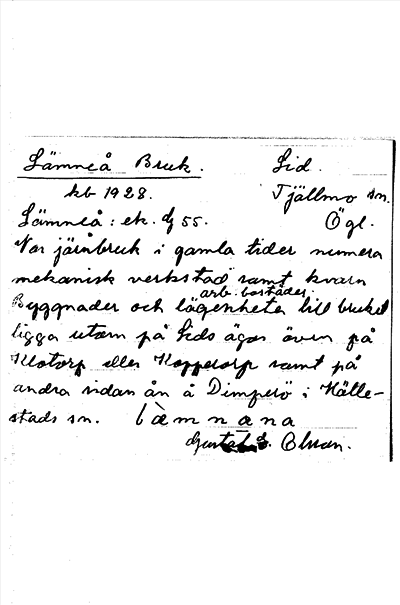 Lämneå Bruk. Lid.
kb 1928. Tjällmo sn.
Lämneå: ek. 55. Ögl.
Var järnbruk i gamla tider numera
mekanisk verkstad samt kvarn
arb. bostäder.
Byggnader och lägenheter till bruket
ligga utom på Lids ägor även på
Klotorp eller Kopparorp samt på
andra sidan ån å Dimperö i Hälle-
stads sn. lämnana
Gustaf Olsson.